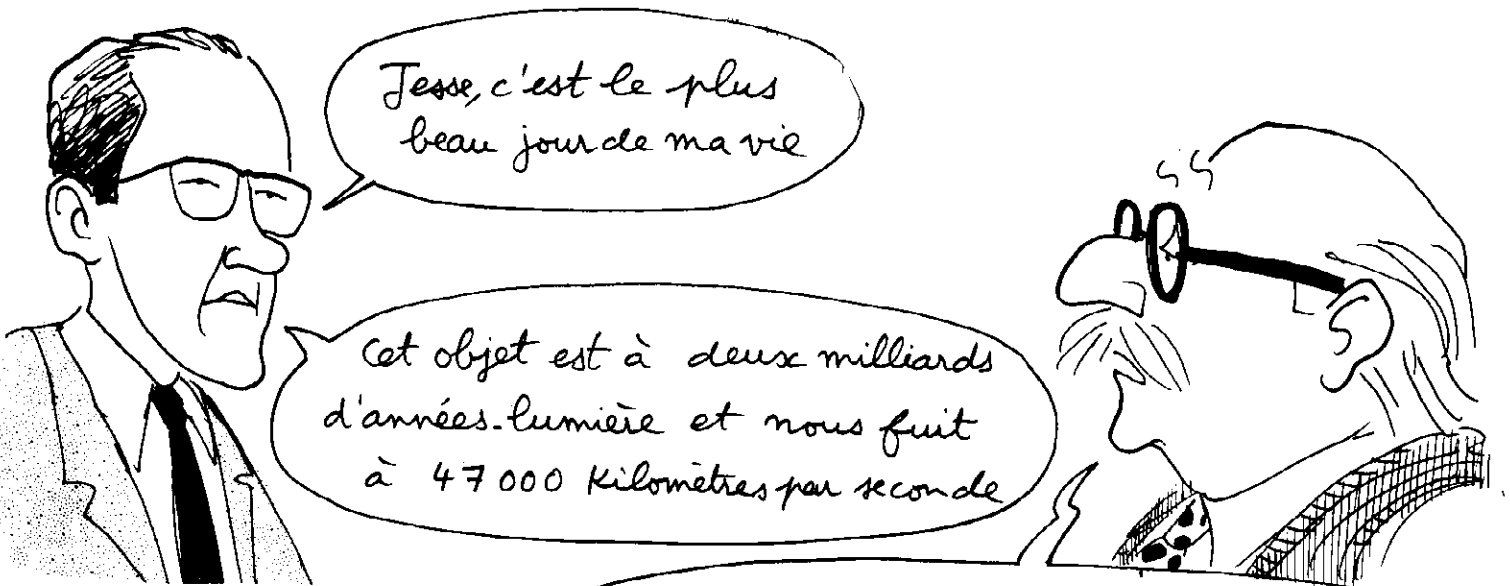 Jesse, c'est le plus
beau jour de ma vie
Cet objet est à deux milliards
d'années-lumière et nous fuit
à 47 000 Kilomètres par seconde